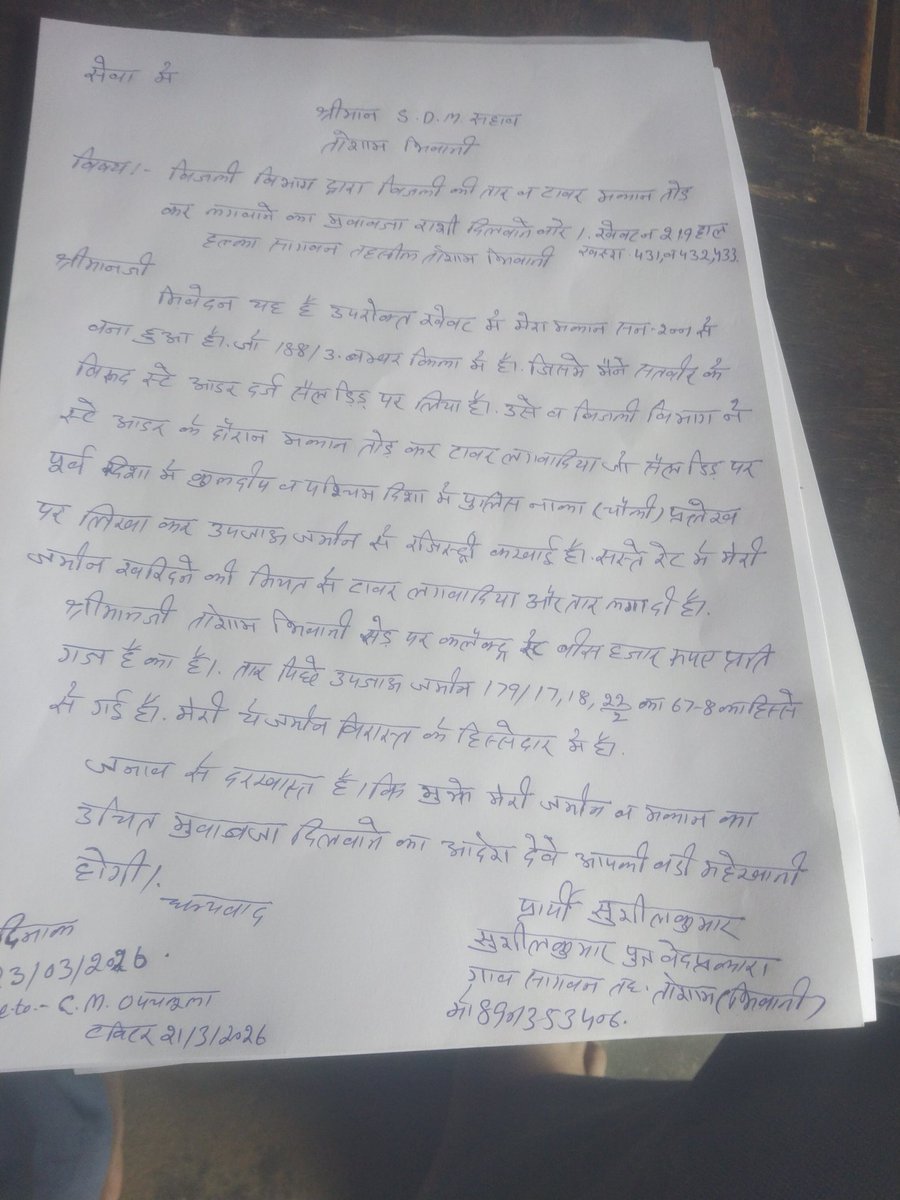 सेवा में
श्रीमान S.D.M सहाव
तोशाम भिवानी
विषय:- बिजली विभाग द्वारा बिजली की तार व टावर मकान तोड़
कर लगवाने का मुवावजा राशी दिलवाने बारे । खेवट न 219 हाल
हल्का सागवन तहसील तोशाम भिवानी खसरा 431, व 432, 433.
श्रीमानजी
निवेदन यह है उपरोक्त खेवट में मेरा मकान सन- से
बना हुआ है। जो 188/3. नम्बर किला में है। जिसमें मैने सतवीर के
विरूद स्टे आडर दर्ज सैल डिड़ पर लिया है। उसे व बिजली विभाग ने
स्टे आडर के दौरान मकान तोड़ कर टावर लगवादिया जो सैल डिड़ पर
पूर्व दिशा में कुलदीप व पश्चिम दिशा में पुलिस नाका (चौकी) प्रलेख
पर लिखा कर उपजाऊ जमीन से रजिस्ट्री करवाई है। सस्ते रेट में मेरी
जमीन खरिदने की नियत से टावर लगवादिया और तार लगा दी है।
श्रीमानजी तोशाम भिवानी रोड़ पर कलैक्ट्र रेट बीस हजार रूपए प्रति
गज है का है। तार पिछे उपजाऊ जमीन 179/17, 18, 22/2 का 67-8 का हिस्से
से गई है। मेरी ये जमीन विरास्त के हिस्सेदार में है।
जनाव से दरखास्त है। कि मुझे मेरी जमीन व मकान का
उचित मुवावजा दिलवाने का आदेश देवे आपकी बडी महेरबानी
होगी।
धन्यवाद
प्रार्थी सुशीलकुमार
सुशीलकुमार पुत्र वेदप्रकाश
गाव सागवन तह. तोशाम (भिवानी)
मो 8901353406.
दिनांक
23/03/2026.
C.M.
टविटर 21/3/2026